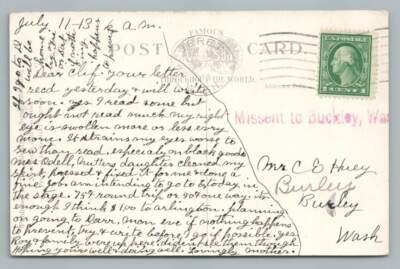 July 11-13 a.m.
FAMOUS
POST CARD.
THROUGHOUT THE WORLD.
Dear Clif. your letter
read yesterday & will write
soon. yes I read some but
ought not read much my right
eye is swollen more or less every
morn. It strains my eyes worse to
sew than read, especially on black goods
Mrs Odell, daughter cleaned my
skirt, pressed & fixed it for me & long a
fine job am intending to go to today in
the stage. 75¢ round trip or 50¢ one way its
enough I think $1.00 to arlington. planning
on going to Darr. mon eve if nothing happens
to prevent, try & write before I go if possible. yes
Roy & family were up here. dident see them though
Hoping your well & doing well. Lovingly, mother.
Missent to Buckley, Wa
Mr C E Huey
Burley
Burley
Wash
1 CENT 1